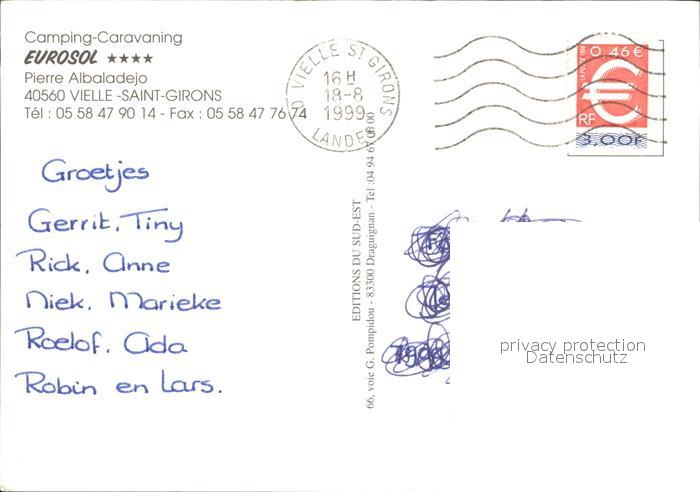 Camping-Caravaning
EUROSOL ★★★★
Pierre Albaladejo
40560 VIELLE -SAINT-GIRONS
Tél : 05 58 47 90 14 - Fax : 05 58 47 76 74
VIELLE ST GIRONS
16 H
18-8
1999
LANDES
0,46€
LA POSTE 1999
€
RF
3,00F
Groetjes
Gerrit, Tiny
Rick, Anne
Niek, Marieke
Roelof, Ada
Robin en Lars.
EDITIONS DU SUD-EST
66, voie G. Pompidou - 83300 Draguignan - Tel :04 94 67 00
privacy protection
Datenschutz